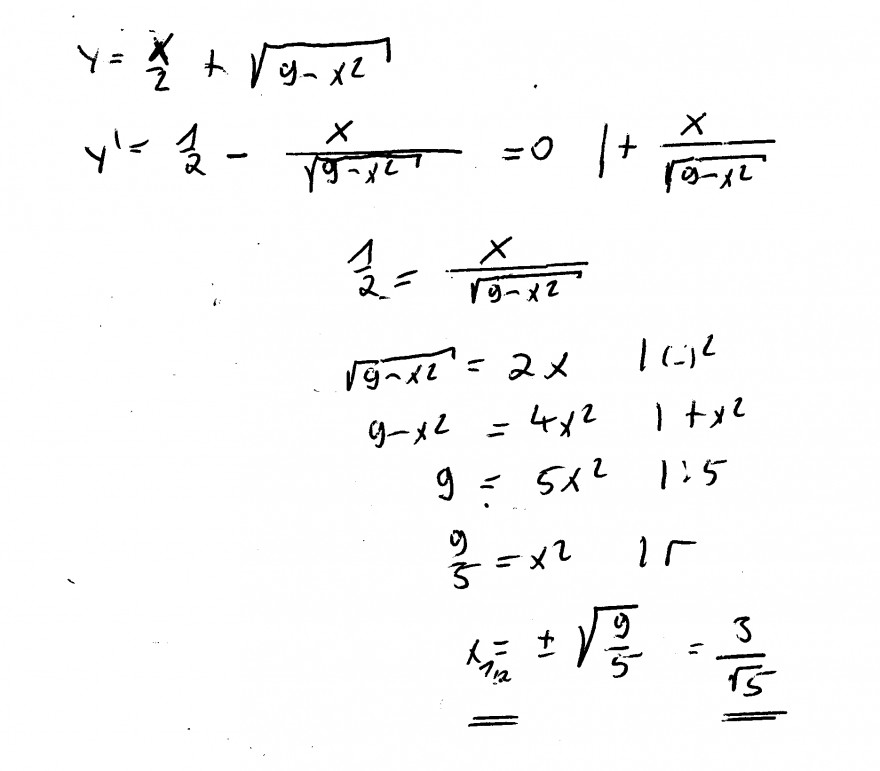 y = x/2 + √(9-x²)
y' = 1/2 - x/√(9-x²) = 0 | + x/√(9-x²)
1/2 = x/√(9-x²)
√(9-x²) = 2x | (-)²
9-x² = 4x² | + x²
9 = 5x² | : 5
9/5 = x² | √
x₁,₂ = ± √(9/5) = 3/√5